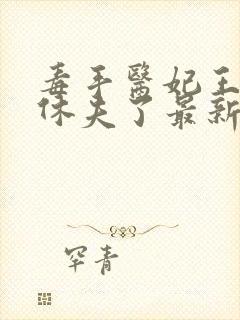 毒手醫妃王
休夫了最新
罕青